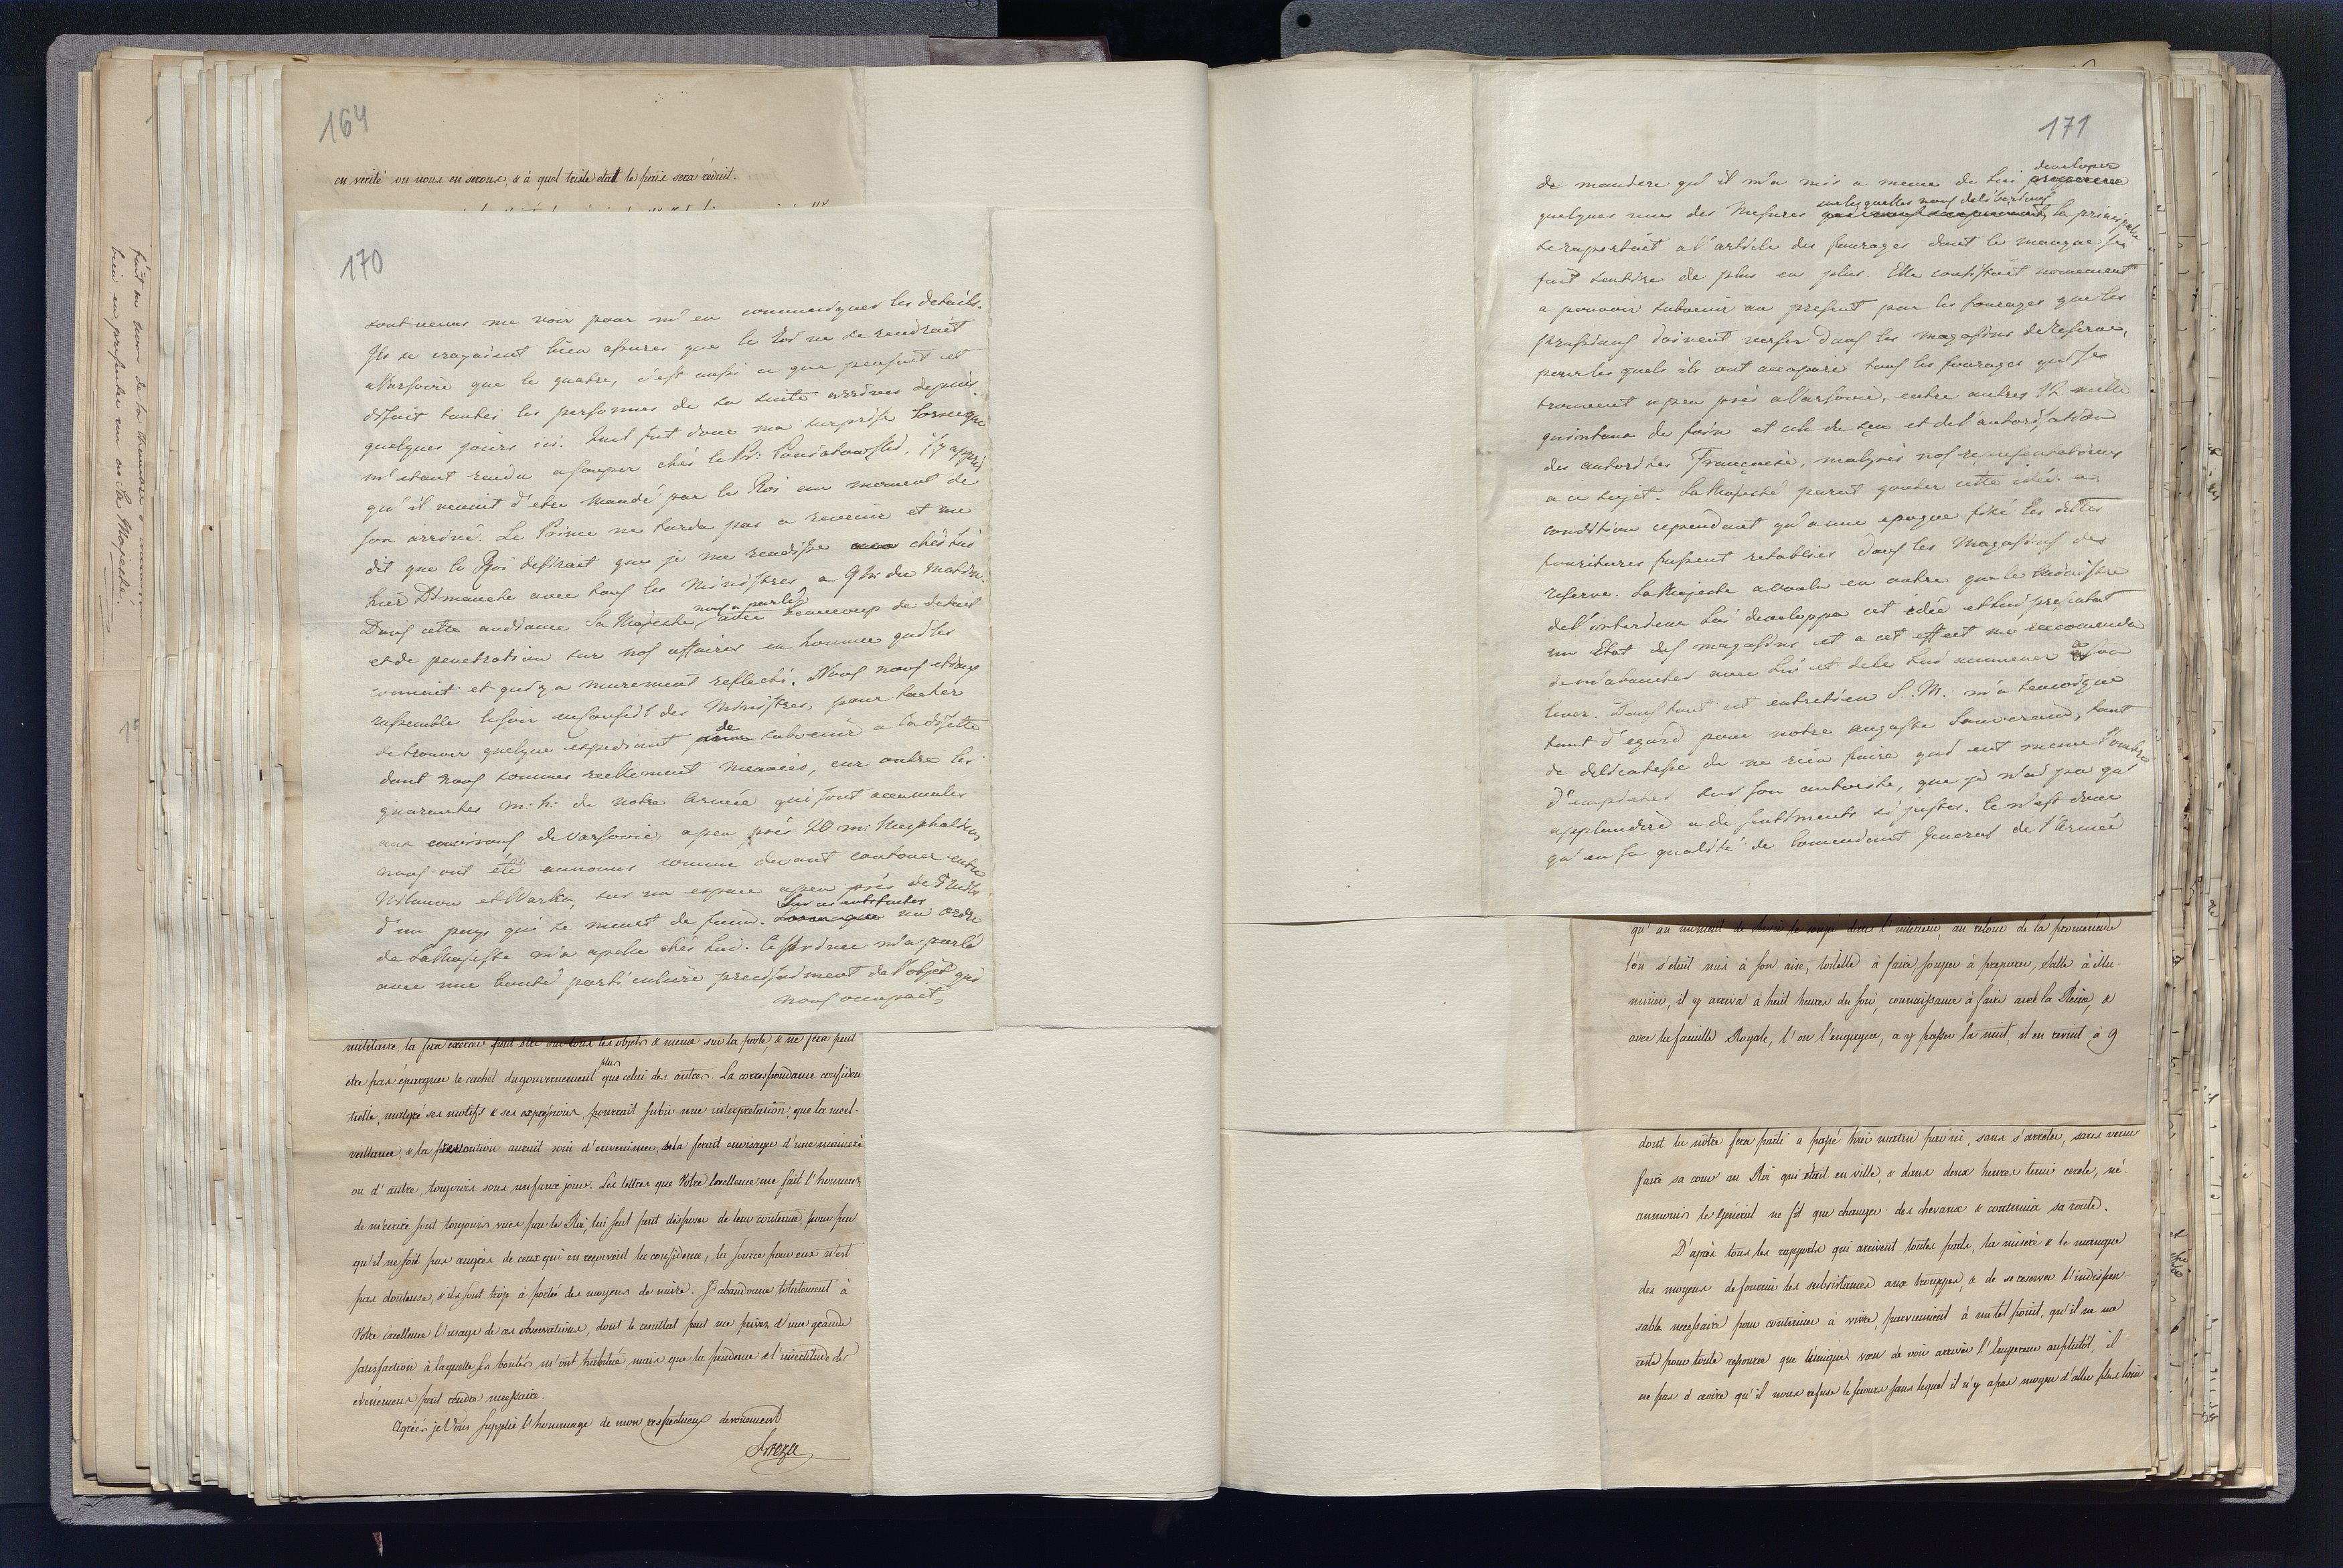 164
en verité ou nous en serons, & à quel triste etat le païs sera réduit.
170
sont venus me voir pour m'en communiquer les details.
Ils se croyaient bien assurés que le Roi ne se rendrait
a Varsovie que le quatre, c'est aussi ce que pensoit et
disait toutes les personnes de sa suite arrivées depuis
quelques jours ici. Quel fut donc ma surprise lorsque
m'etant rendu a souper chés le Pr: Poniatowski, j'y appris
qu'il venoit d'etre mandé par le Roi au moment de
son arrivé. Le Prince ne tarda pas a revenir et me
dit que le Roi desirait que je me rendisse chés lui
hier Dimanche avec tous les Ministres, a 9 h: du matin.
Dans cette audiance Sa Majesté, nous a parlé avec beaucoup de detail
et de penetration sur nos affaires en homme qui les
connoit et qui y a murement reflechi. Nous nous etions
rassemblés le soir en Conseil des Ministres, pour tacher
de trouver quelque expedient de subvenir a la disette
dont nous sommes reellement menacés, car outre les
quarantes m: h: de notre Armée qui sont accumulés
aux environs de Varsovie, a peu près 20 m: Westphaliens
nous ont été annoncés comme devant cantoner entre
Wilanow et Warka, sur un espace a peu près de 5 milles
d'un pays qui se meurt de faim. Sur ces entrefaites un ordre
de Sa Majesté m'a apellé chés lui. Ce Prince m'a parlé
avec une bonté particuliere precisement de l'objet qui
nous occupait,
militaire, la fera exercer peut être sur tous les objets & meme sur la poste, & ne fera peut
etre pas épargner le cachet du gouvernement plus que celui des autres. La correspondance confiden
tielle, malgré ses motifs & ses expressions, pourrait subir une interpretation, que la mal-
veillance, & la prevention aurait soin d'envenimer, cela serait envisagé d'une maniere
ou d'autre, toujours sous un faux jour. Les lettres que Votre Excellence me fait l'honneur
de m'ecrire sont toujours vues par le Roi, lui seul peut disposer de leur contenu, pour peu
qu'il ne soit pas auprès de ceux qui en reçoivent la confidence, la source pour eux n'est
pas douteuse, & ils sont trop à portée des moyens de nuire. J'abandonne totalement à
Votre Excellence l'usage de ces observations, dont le resultat peut me priver d'une grande
satisfaction à laquelle ses bontés m'ont habitué, mais que la prudence & l'incertitude des
évenemens peut rendre necessaire.
Agréés je Vous supplie l'hommage de mon respectueux devouement
Breza
171
de maniere qu'il m'a mis a meme de lui developer
quelques unes des Mesures sur lesquelles nous deliberions, la principale
se raportait a l'article des fourages dont le manque se
fait sentire de plus en plus. Elle consistait nomement
a pouvoir subvenir au present par les fourages que les
prussiens doivent verser dans les magasins de reserve,
pour les quels ils ont accaparé tous les fourages qui se
trouvent a peu près a Varsovie, entre autres 12 mille
quintaux de foin et cela de sçu et de l'autorisation
des autorités Française, malgrés nos representations
a ce sujet. Sa Majesté parut gouter cette idée a
condition cependant qu'a une epoque fixé les dittes
fournitures fussent retablies dans les Magasins de
reserve. Sa Majesté a voulu en outre que le Ministre
de l'interieur lui developpa cet idée et lui presentat
un Etat des magasins et a cet effet me recomenda
de m'aboucher avec lui et de le lui ammener a son
lever. Dans tout cet entretien S. M. m'a temoigné
tant d'egard pour notre auguste Souverain, tant
de delicatesse de ne rien faire qui eut meme l'ombre
d'empieter sur son autorité, que je n'ai pu qu'
applaudire a de sentiments si justes. Ce n'est donc
qu'en sa qualité de Comendant General de l'Armée
qu'au moment de
l'on s'etait mis à son aise, toilette à faire, souper à preparer, salle à illu-
miner, il y arriva à huit heures du soir, connaissance à faire avec la Reine, &
avec la famille Royale, l'on l'engagea, a y passer la nuit, il en revint à 9
dont la nôtre fera parti a passé hier matin par ici, sans s'arreter, sans venir
faire sa cour au Roi qui était en ville, & dans deux heures tenir cercle, né-
anmoins le Général ne fit que changer des chevaux & continuer sa route.
D'après tous les rapports qui arrivent toutes parts, la misere & le manque
des moyens de fournir les subsistances aux trouppes, & de se reserver l'indispen-
sable necessaire pour continuer à vivre, parviennent à un tel point, qu'il ne me
reste pour toute ressource que l'unique vœu de voir arriver l'Empereur au plutôt, il
ne pas à croire qu'il nous refuse le secours sans lequel il n'y a pas moyen d'aller plus loin